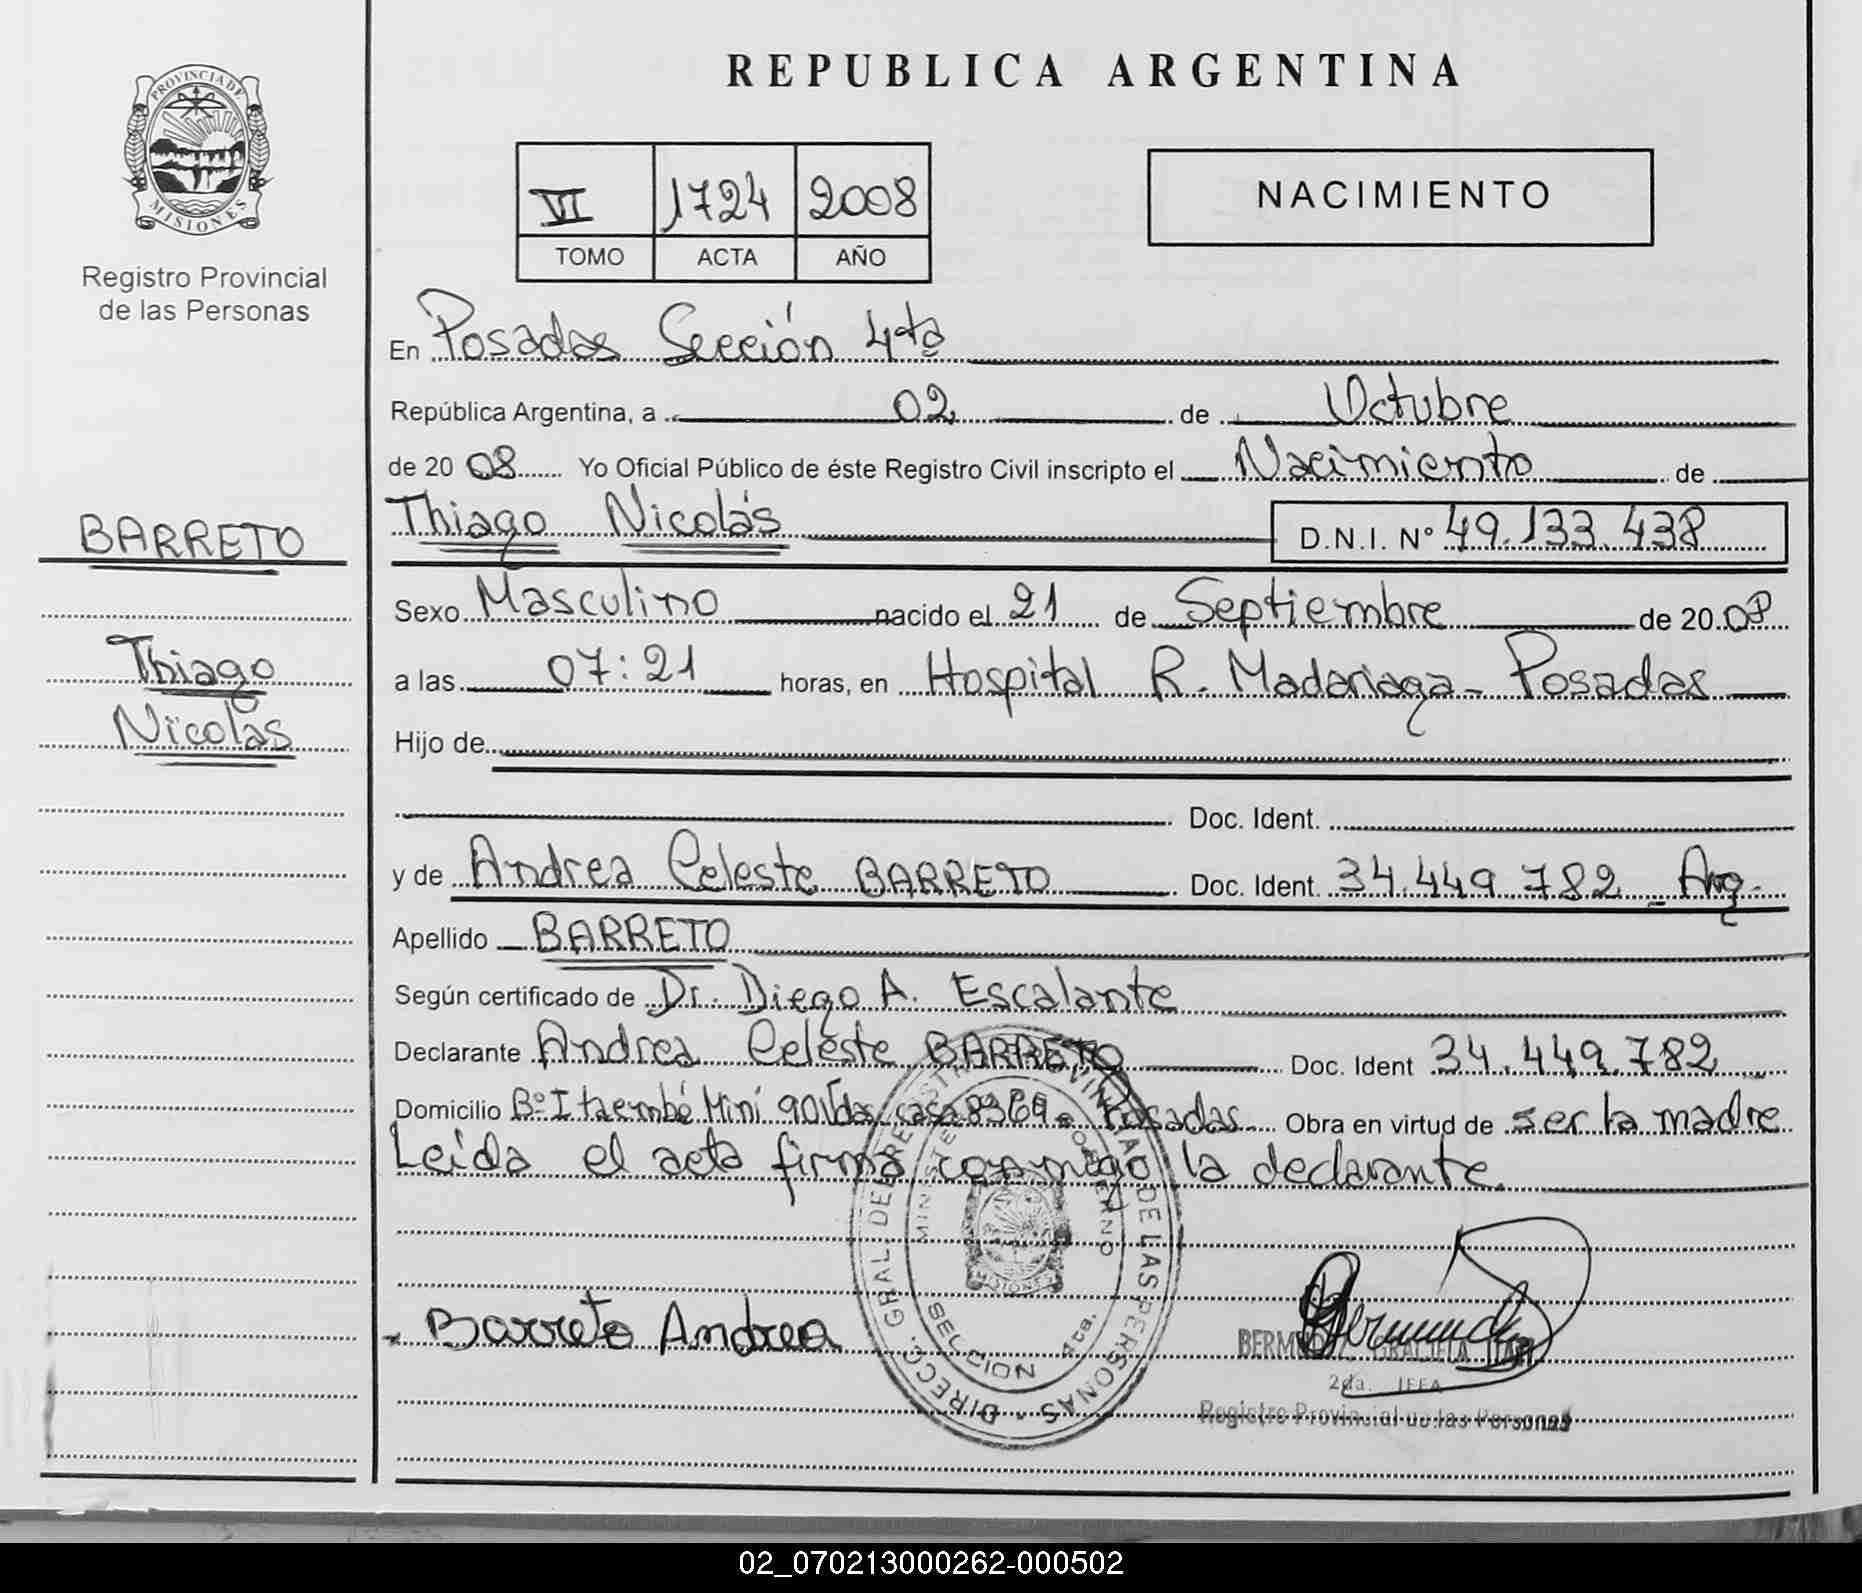 REPUBLICA ARGENTINA
PROVINCIA DE
MISIONES
Registro Provincial
de las Personas
VI 1724 2008
TOMO ACTA AÑO
NACIMIENTO
En Posadas Sección 4ta
República Argentina, a 02 de Octubre
de 20 08 Yo Oficial Público de éste Registro Civil inscripto el Nacimiento de
Thiago Nicolás D.N.I. Nº 49.133.438
BARRETO
Thiago
Nicolás
Sexo Masculino nacido el 21 de Septiembre de 20 08
a las 07:21 horas, en Hospital R. Madariaga - Posadas
Hijo de
Doc. Ident.
y de Andrea Celeste BARRETO Doc. Ident. 34.449.782 - Arg.
Apellido BARRETO
Según certificado de Dr. Diego A. Escalante
Declarante Andrea Celeste BARRETO Doc. Ident 34.449.782
Domicilio Bº Itaembé Miní 90 Vdas casa Posadas Obra en virtud de ser la madre
Leída el acta firma conmigo la declarante.
DIRECC. GRAL. DEL REGISTRO PROVINCIAL DE LAS PERSONAS
MINISTERIO DE GOBIERNO
MISIONES
SECCION 4ta.
Barreto Andrea
BERMUDEZ, GRACIELA ITATI
2da. JEFA
Registro Provincial de las Personas
02_070213000262-000502